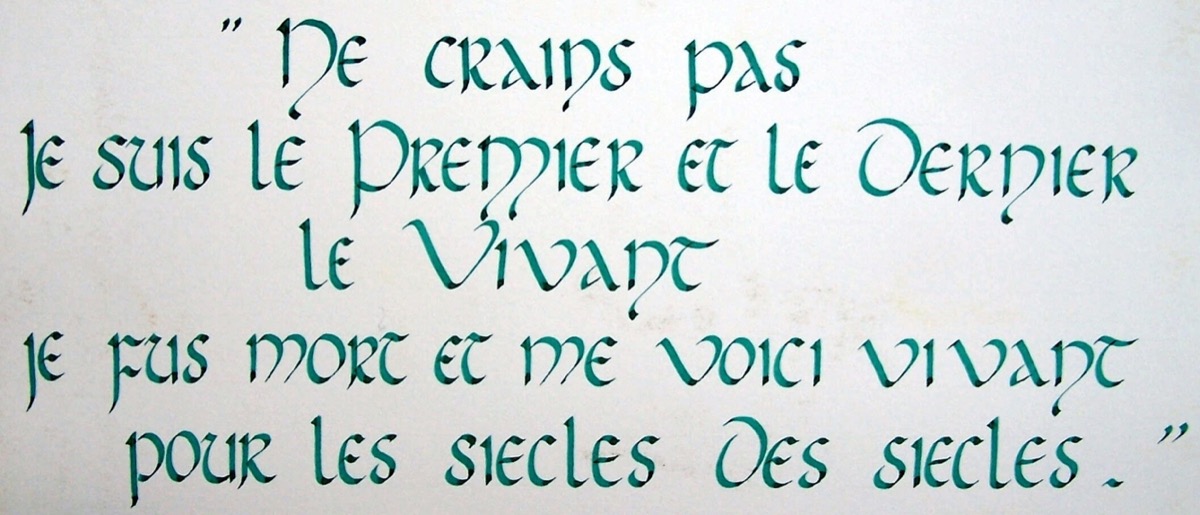 " Ne crains pas
Je suis le Premier et le Dernier
le Vivant
je fus mort et me voici vivant
pour les siecles des siecles. "